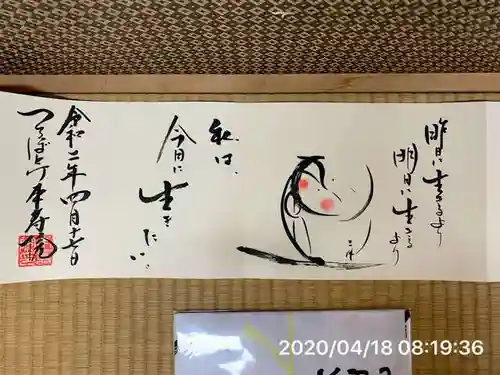 昨日に生きるより
明日に生きる
より
私は、
今日に
生き
たい。
令和二年四月十七日
2020/04/18 08:19:36